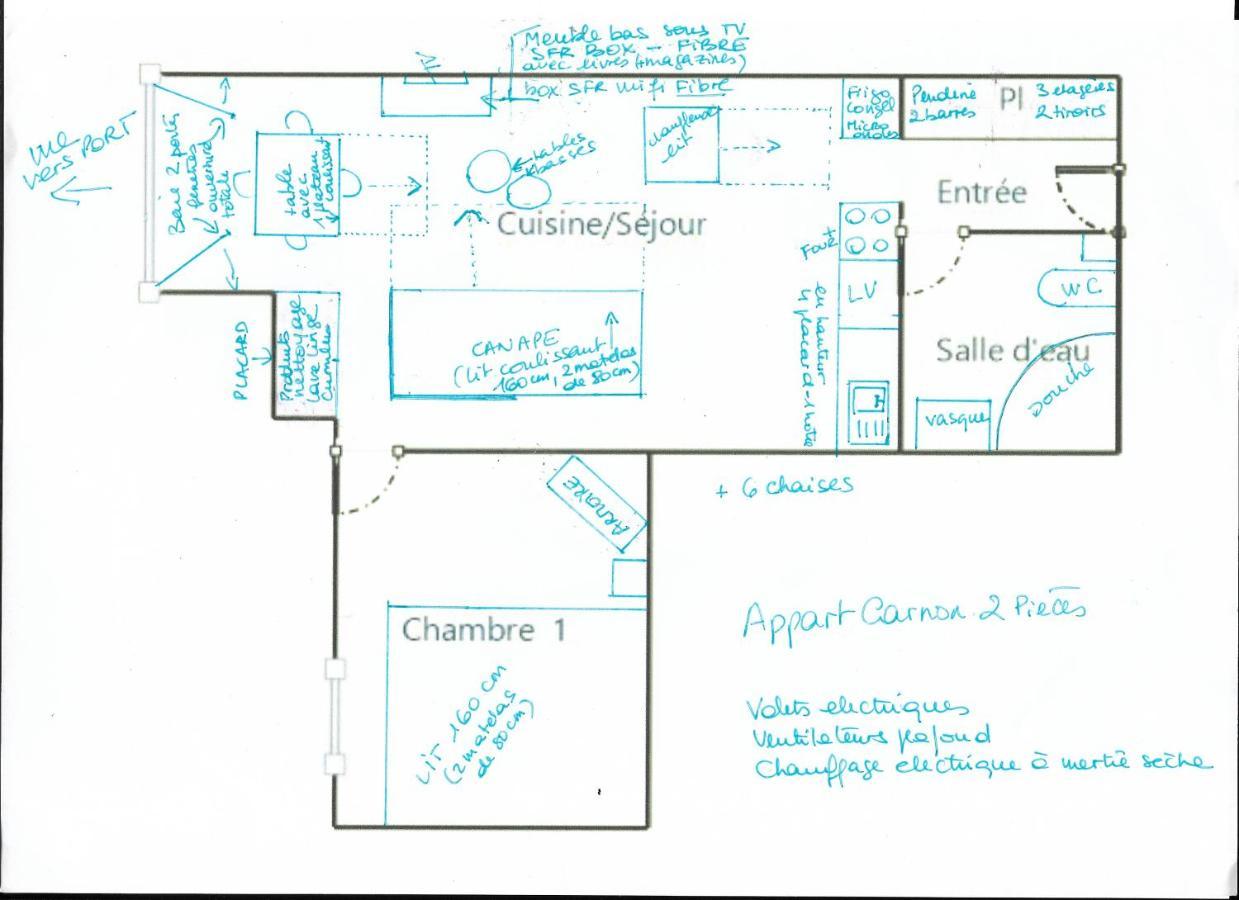 Meuble bas sous TV
SFR BOX - FIBRE
avec livres (+magazines)
box SFR wifi Fibre
vue
vers PORT
Baie 2 portes
fenêtres
ouverture
totale
table
avec
1 plateau
coulissant
tables
basses
chauffeuse
lit
Frigo
Congel
Micro
ondes
Penderie
2 barres
Pl
3 etagères
2 tiroirs
Entrée
Cuisine/Séjour
+
FOUR
LV
en hauteur
4 placard - 1 hotte
WC
Salle d'eau
Douche
vasque
PLACARD
Produits
nettoyage
Lave linge
Cumulus
CANAPE
(Lit coulissant
160 cm, 2 matelas
de 80 cm)
+ 6 chaises
ARMOIRE
Chambre 1
LIT 160 cm
(2 matelas
de 80 cm)
Appart Carnon 2 Pieces
Volets electriques
Ventilateurs plafond
Chauffage electrique à inertie sèche